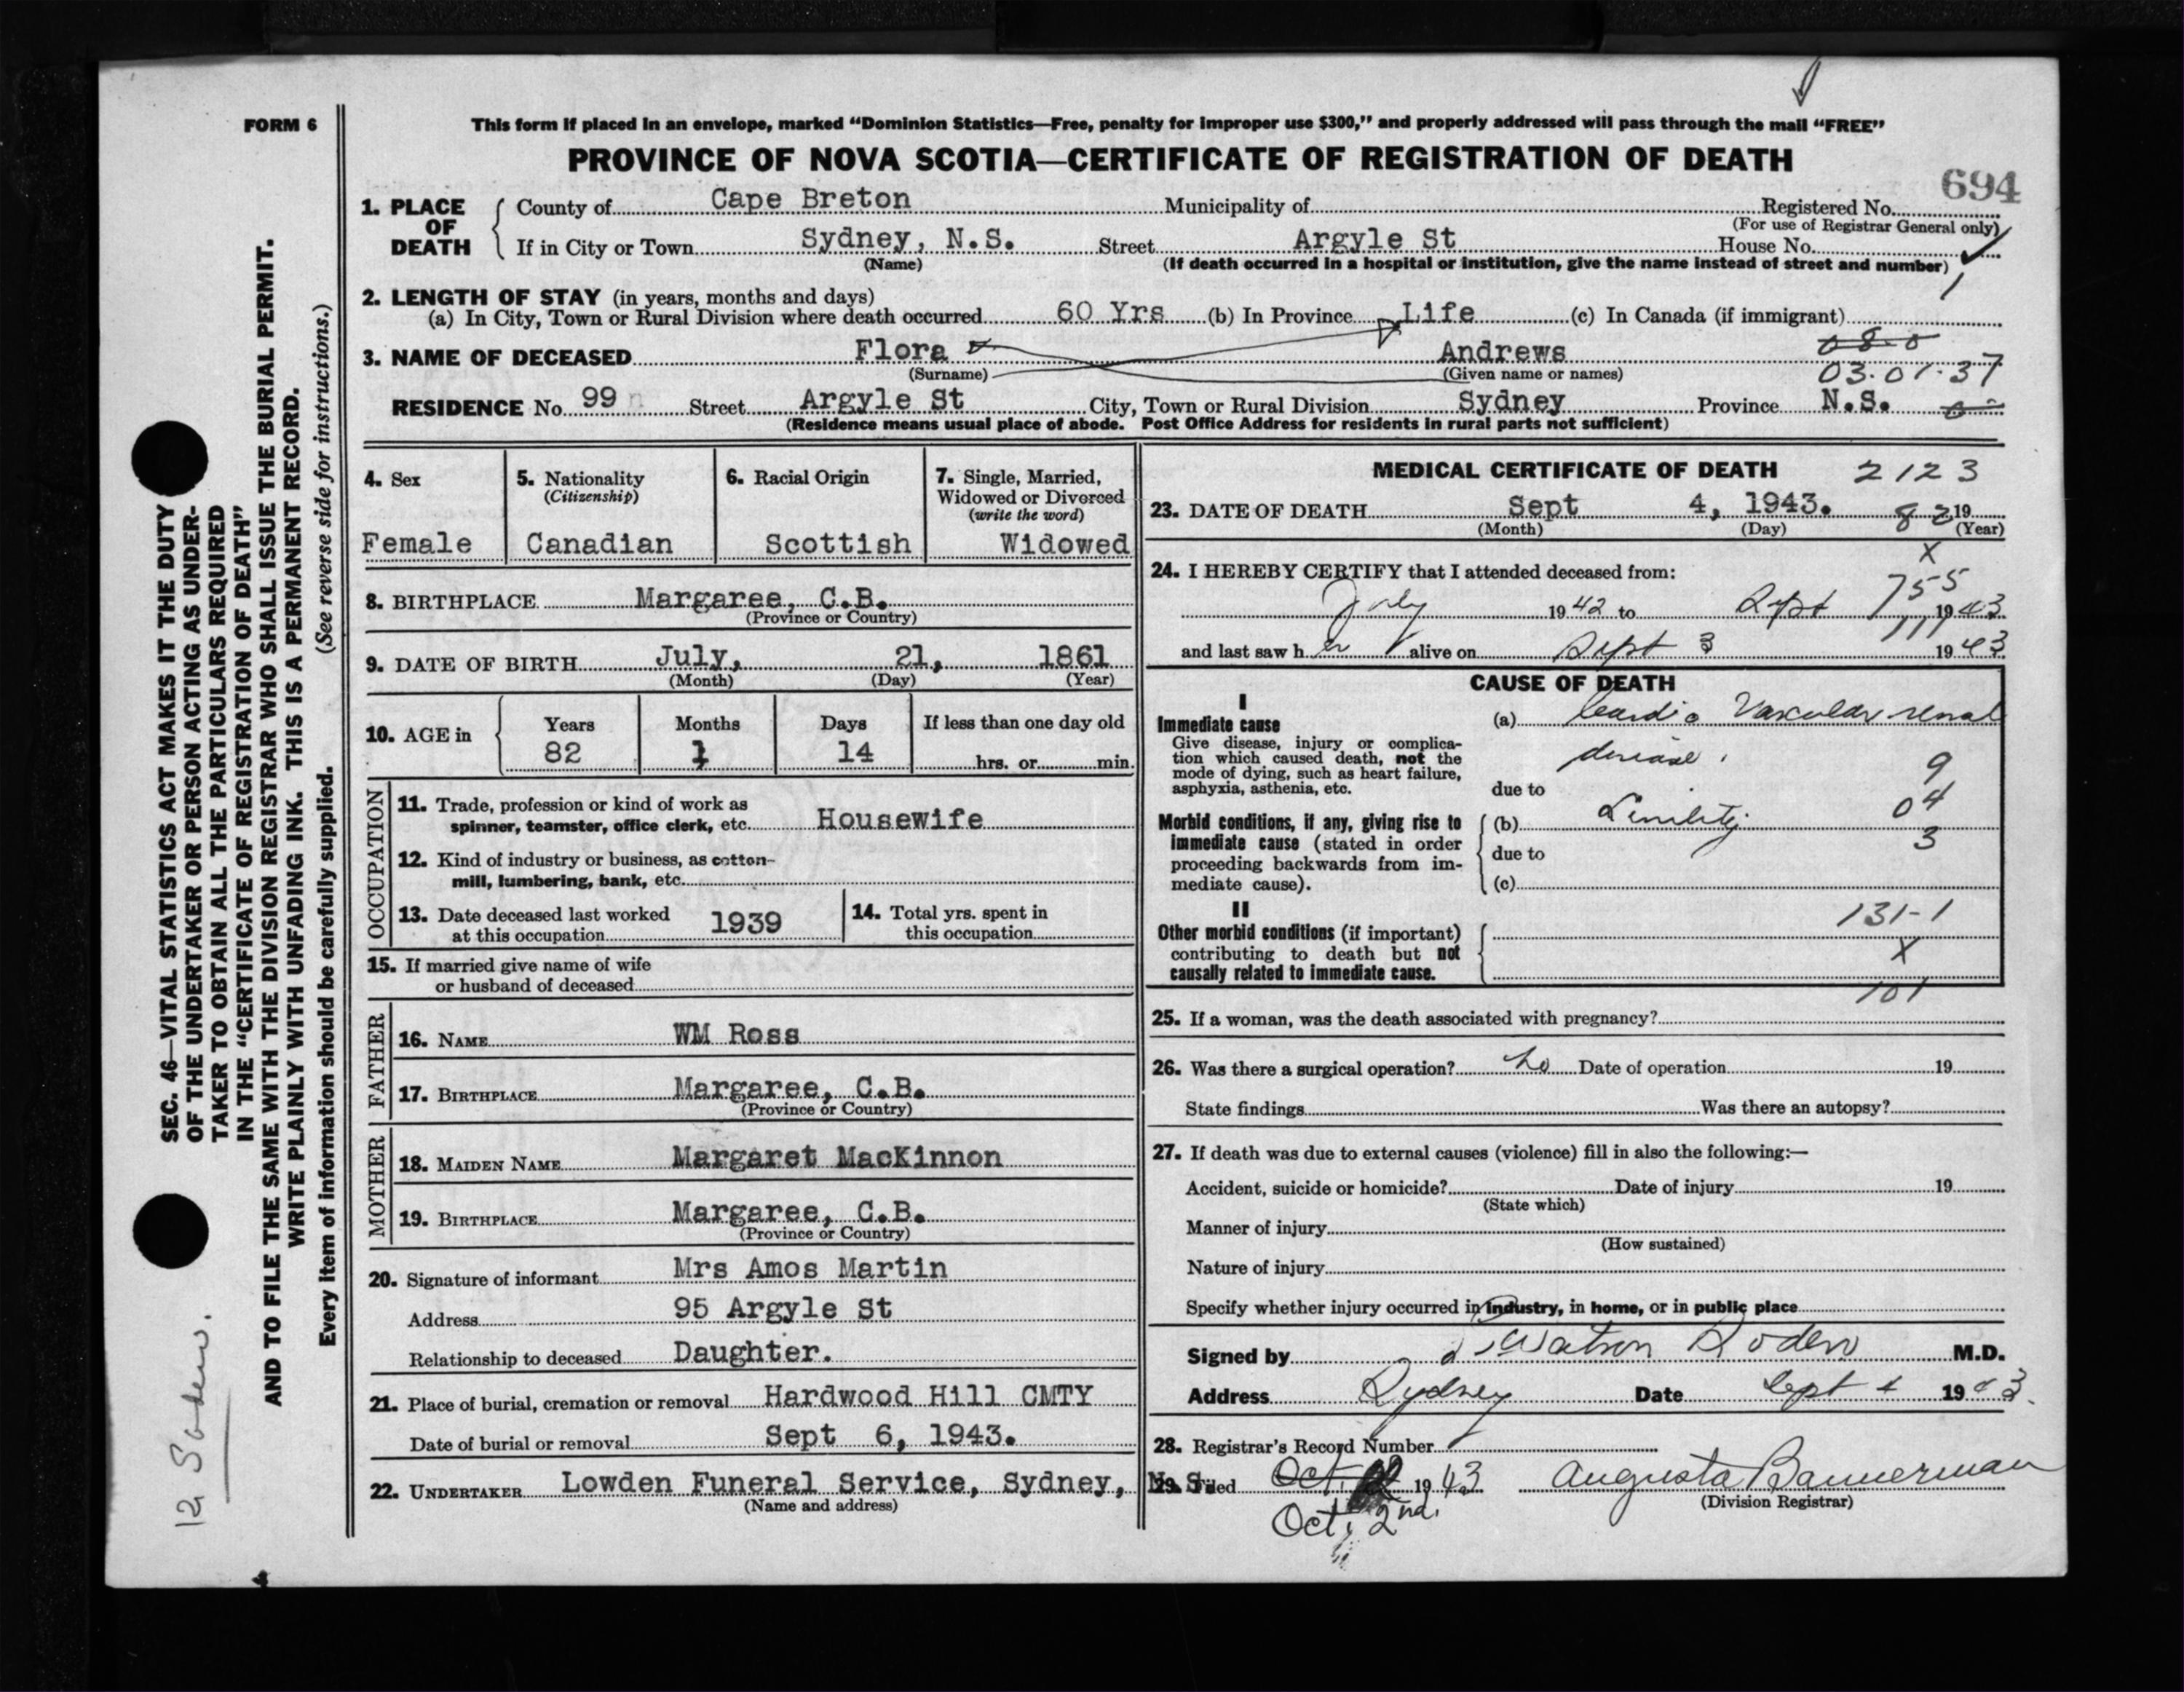 FORM 6
This form if placed in an envelope, marked “Dominion Statistics—Free, penalty for improper use $300,” and properly addressed will pass through the mail “FREE”
PROVINCE OF NOVA SCOTIA—CERTIFICATE OF REGISTRATION OF DEATH
694
1. PLACE OF DEATH
County of Cape Breton Municipality of Registered No.
(For use of Registrar General only)
If in City or Town Sydney, N.S. Street Argyle St House No.
(Name) (If death occurred in a hospital or institution, give the name instead of street and number)
2. LENGTH OF STAY (in years, months and days)
(a) In City, Town or Rural Division where death occurred 60 Yrs (b) In Province Life (c) In Canada (if immigrant)
3. NAME OF DECEASED Flora Andrews
(Surname) (Given name or names) 03.01.37
RESIDENCE No. 99 Street Argyle St City, Town or Rural Division Sydney Province N.S.
(Residence means usual place of abode. Post Office Address for residents in rural parts not sufficient)
4. Sex
Female
5. Nationality
(Citizenship)
Canadian
6. Racial Origin
Scottish
7. Single, Married,
Widowed or Divorced
(write the word)
Widowed
8. BIRTHPLACE Margaree, C.B.
(Province or Country)
9. DATE OF BIRTH July, 21, 1861
(Month) (Day) (Year)
10. AGE in
Years Months Days If less than one day old
82 1 14 hrs. or min.
OCCUPATION
11. Trade, profession or kind of work as
spinner, teamster, office clerk, etc. Housewife
12. Kind of industry or business, as cotton-
mill, lumbering, bank, etc.
13. Date deceased last worked
at this occupation 1939
14. Total yrs. spent in
this occupation
15. If married give name of wife
or husband of deceased
FATHER
16. NAME WM Ross
17. BIRTHPLACE Margaree, C.B.
(Province or Country)
MOTHER
18. MAIDEN NAME Margaret MacKinnon
19. BIRTHPLACE Margaree, C.B.
(Province or Country)
20. Signature of informant Mrs Amos Martin
Address 95 Argyle St
Relationship to deceased Daughter.
21. Place of burial, cremation or removal Hardwood Hill CMTY
Date of burial or removal Sept 6, 1943.
22. UNDERTAKER Lowden Funeral Service, Sydney, N.S.
(Name and address)
MEDICAL CERTIFICATE OF DEATH 2123
23. DATE OF DEATH Sept 4, 1943. 82 19
(Month) (Day) (Year)
X
24. I HEREBY CERTIFY that I attended deceased from:
755
July 1942 to Sept 1943
111
and last saw her alive on Sept 3 1943
CAUSE OF DEATH
I
Immediate cause
Give disease, injury or complica-
tion which caused death, not the
mode of dying, such as heart failure,
asphyxia, asthenia, etc.
(a) Cardio Vascular renal
disease.
9
due to
04
Morbid conditions, if any, giving rise to
immediate cause (stated in order
proceeding backwards from im-
mediate cause).
(b) Senility
3
due to
(c)
II
Other morbid conditions (if important)
contributing to death but not
causally related to immediate cause.
131-1
X
101
25. If a woman, was the death associated with pregnancy?
26. Was there a surgical operation? no Date of operation 19
State findings Was there an autopsy?
27. If death was due to external causes (violence) fill in also the following:—
Accident, suicide or homicide? Date of injury 19
(State which)
Manner of injury
(How sustained)
Nature of injury
Specify whether injury occurred in industry, in home, or in public place
Signed by Watson M.D.
Address Sydney Date Sept 4 1943.
28. Registrar's Record Number
29. Filed Oct. 1943 Augusta Bannerman
Oct. 2nd. (Division Registrar)
SEC. 46—VITAL STATISTICS ACT MAKES IT THE DUTY
OF THE UNDERTAKER OR PERSON ACTING AS UNDER-
TAKER TO OBTAIN ALL THE PARTICULARS REQUIRED
IN THE “CERTIFICATE OF REGISTRATION OF DEATH”
AND TO FILE THE SAME WITH THE DIVISION REGISTRAR WHO SHALL ISSUE THE BURIAL PERMIT.
WRITE PLAINLY WITH UNFADING INK. THIS IS A PERMANENT RECORD.
Every item of information should be carefully supplied. (See reverse side for instructions.)